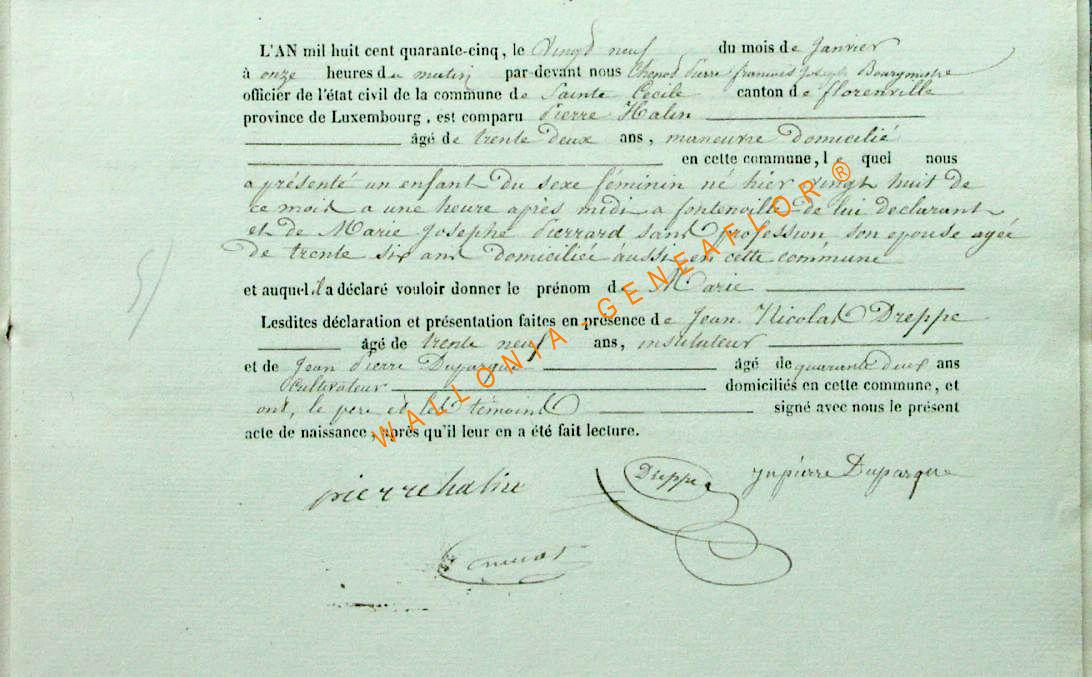 L'AN mil huit cent quarante-cinq, le vingt neuf du mois de Janvier
à onze heures du matin par-devant nous Pierre françois Joseph Bourgmestre
officier de l'état civil de la commune de Sainte Cecile canton de florenville
province de Luxembourg, est comparu Pierre Halin
âgé de trente deux ans, maneuvre domicilié
en cette commune, le quel nous
a présenté un enfant du sexe féminin né hier vingt huit de
ce mois a une heure après midi a fontenoille de lui declarant
et de Marie Josephe Pierrard sans profession son epouse agée
de trente six ans domiciliée aussi en cette commune
et auquel il a déclaré vouloir donner le prénom de Marie
Lesdites déclaration et présentation faites en présence de Jean Nicolas Dreppe
âgé de trente neuf ans, instituteur
et de Jean Pierre Duparque âgé de quarante deux ans
cultivateur domiciliés en cette commune, et
ont, le pere et les témoins signé avec nous le présent
acte de naissance, après qu'il leur en a été fait lecture.
pierre halin Dreppe Jnpierre Duparque
WALLONIA-GENEAFLOR®